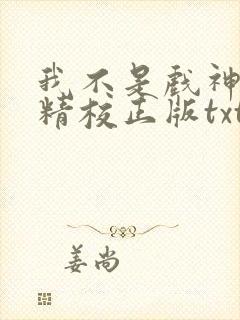 我不是戏神
精校正版txt
姜尚